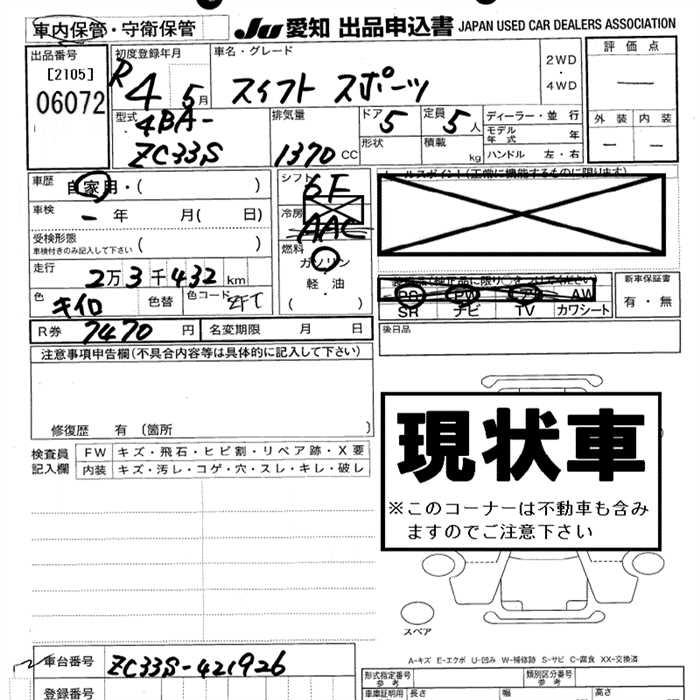 車内保管・守衛保管
JU 愛知 出品申込書 JAPAN USED CAR DEALERS ASSOCIATION
出品番号
[2105]
06072
初度登録年月
R4 5月
車名・グレード
スイフト スポーツ
2WD
・
4WD
評価点
―
外装 内装
― ―
型式
4BA-
ZC33S
排気量
1370 CC
ドア 5
形状
定員 5人
積載 kg
ディーラー・並行
モデル年式 年
ハンドル 左・右
車歴 自家用・( )
車検 ― 年 月( 日)
受検形態
車検付きのみ記入して下さい ( )
走行 2万3千432km
色 キイロ 色替 色コード ZFT
R券 7470円 名変期限 月 日
シフト 6F
冷房 AAC
燃料
ガソリン
軽・油
( )
セールスポイント(正常に機能するものに限ります)
PS PW AW
SR ナビ TV カワシート
新車保証書
有・無
後日品
注意事項申告欄(不具合内容等は具体的に記入して下さい)
修復歴 有 〔箇所 〕
検査員記入欄
FW キズ・飛石・ヒビ割・リペア跡・X要
内装 キズ・汚レ・コゲ・穴・スレ・キレ・破し
現状車
※このコーナーは不動車も含み
ますのでご注意下さい
スペア
A-キズ E-エクボ U-凹み W-補修跡 S-サビ C-腐食 XX-交換済
車台番号 ZC33S-421926
登録番号
型式指定番号 参考
類別区分番号 参考
車庫証明用 長さ 幅 高さ